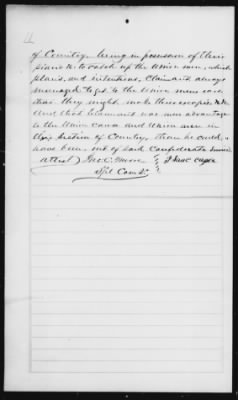 of Country being in possession of their
plans &c to catch up the Union men, which
plans, and intentions, Claimant always
managed to get to the Union men and
that they might make their escapes &c
And that Claimant was more advantage
to the Union cause and Union men in
this section of Country, than he could
have been, out of said Confederate service
Attest } Isaac
Spl Com